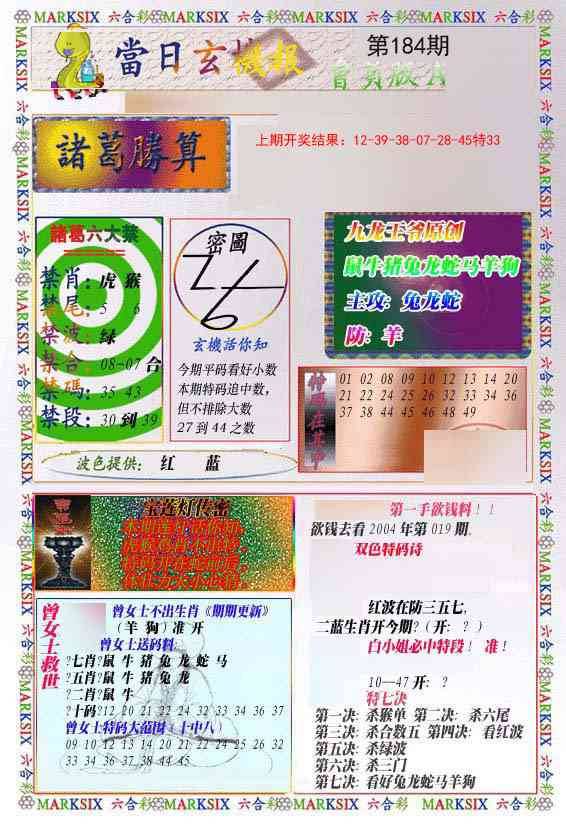 MARKSIX 六合彩 MARKSIX 六合彩 MARKSIX 六合彩 MARKSIX 六合彩
當日玄機報
第184期
諸葛勝算
上期开奖结果：12-39-38-07-28-45特33
諸葛六大禁
禁肖：虎 猴
禁尾：5 6
禁波：绿
禁合：08-07合
禁碼：35 43
禁段：30到39
密圖
玄機活你知
今期平码看好小数
本期特码追中数，
但不排除大数
27到44之数
九龙王爷原创
鼠牛猪兔龙蛇马羊狗
主攻：兔龙蛇
防：羊
特码在其中
01 02 08 09 10 12 13 14 20
21 22 24 25 26 32 33 34 36
37 38 44 45 46 48 49
波色提供： 红 蓝
宝莲灯传密
曾女士救世
曾女士不出生肖《期期更新》
（羊 狗）准 开
曾女士送码料:
?七肖?鼠 牛 猪 兔 龙 蛇 马
?五肖?鼠 牛 猪 兔 龙
?二肖?鼠 牛
?十码?12 20 21 22 24 32 33 34 36 37
曾女士特码大范围（十中八）
09 10 12 13 14 20 21 22 24 25 26 32
33 34 36 37 38 44 45
第一手欲钱料！！
欲钱去看2004年第019期.
双色特码诗
红波在防三五七,
二蓝生肖开今期?（开: ?）
白小姐必中特段！ 准！
10—47开: ?
特七决
第一决: 杀猴单 第二决: 杀六尾
第三决: 杀合数五 第四决: 看红波
第五决: 杀绿波
第六决: 杀三门
第七决: 看好兔龙蛇马羊狗
MARKSIX 六合彩 MARKSIX 六合彩 MARKSIX 六合彩 MARKSIX 六合彩